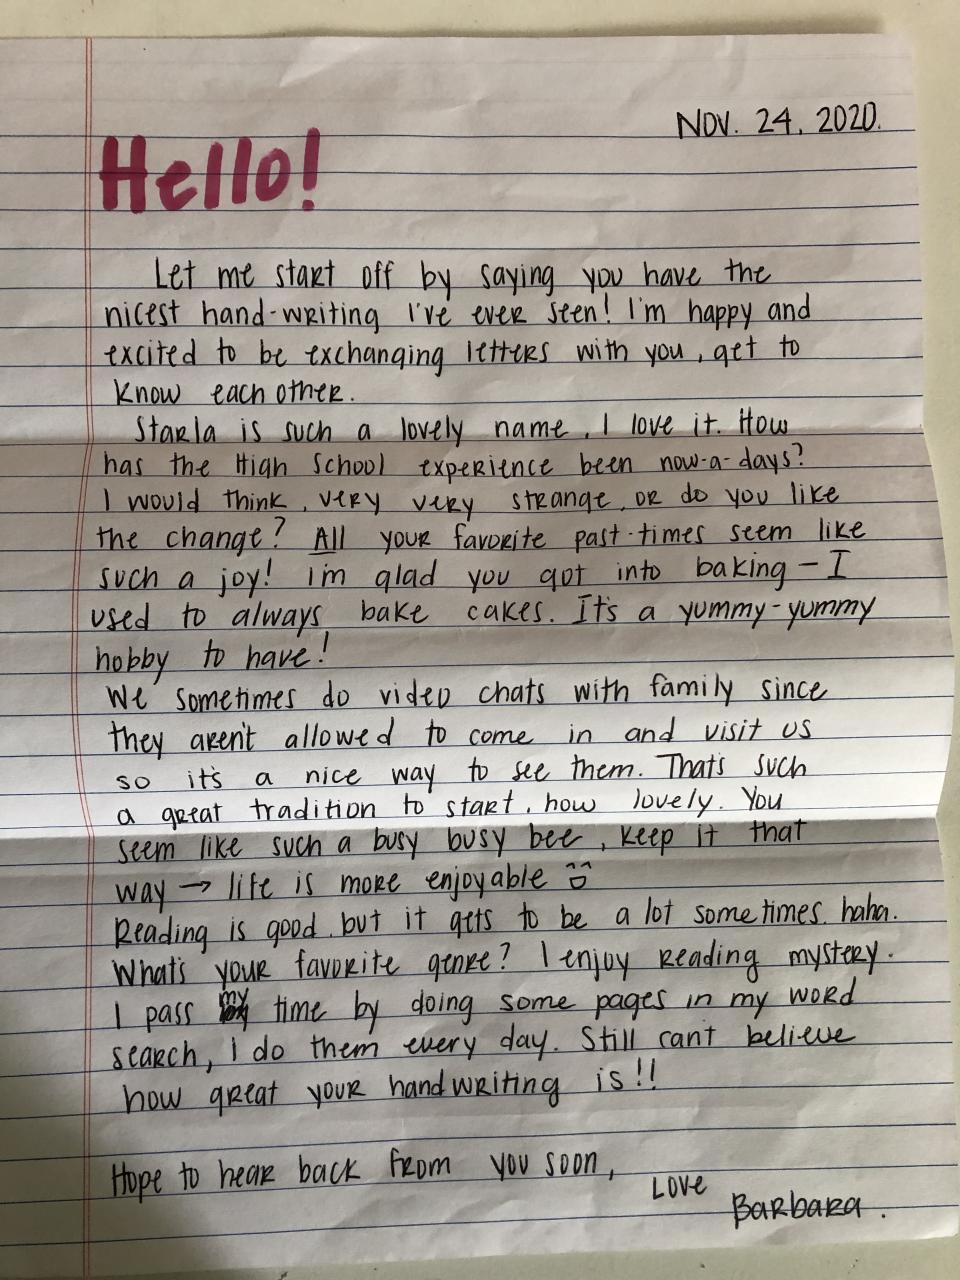 NOV. 24, 2020.
Hello!
Let me start off by saying you have the
nicest hand-writing I've ever seen! I'm happy and
excited to be exchanging letters with you, get to
know each other.
Starla is such a lovely name, I love it. How
has the High School experience been now-a-days?
I would think, very very strange, or do you like
the change? All your favorite past-times seem like
such a joy! i'm glad you got into baking - I
used to always bake cakes. It's a yummy-yummy
hobby to have!
We sometimes do video chats with family since
they aren't allowed to come in and visit us
so it's a nice way to see them. That's such
a great tradition to start, how lovely. You
seem like such a busy busy bee, keep it that
way → life is more enjoyable
Reading is good, but it gets to be a lot sometimes. haha.
What's your favorite genre? I enjoy reading mystery.
I pass my time by doing some pages in my word
search, I do them every day. Still can't believe
how great your handwriting is!!
Hope to hear back from you soon,
Love
Barbara.